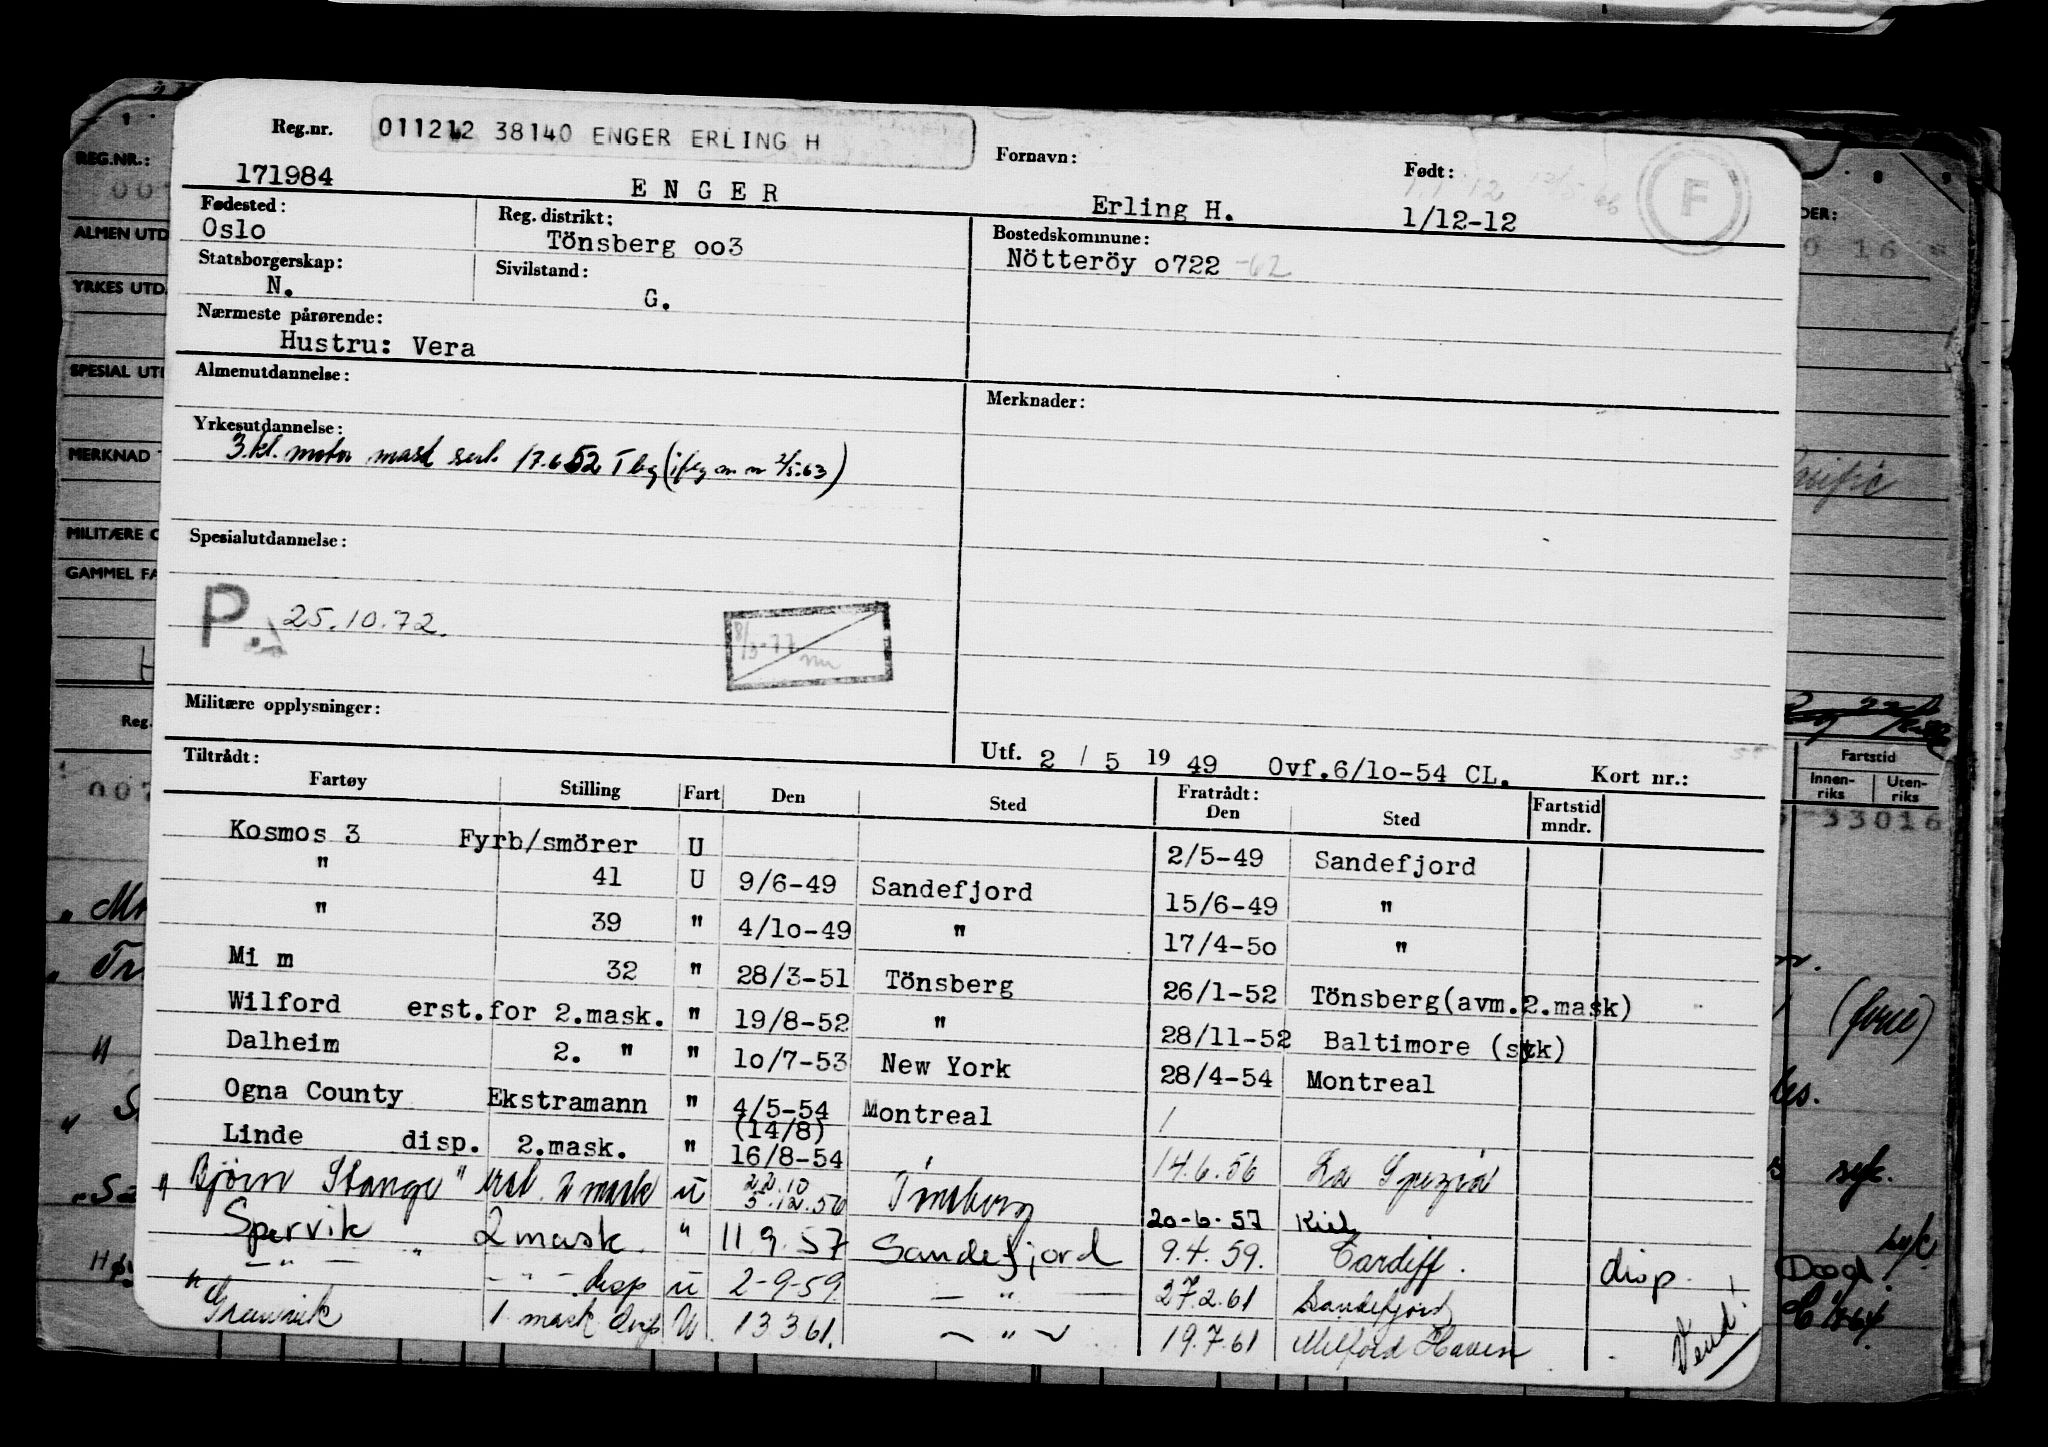 Reg.nr. 011212 38140 ENGER ERLING H
Fornavn: Født:
171984 E N G E R Erling H. 1/12-12 F
Fødested: Reg. distrikt: Bostedskommune:
Oslo Tönsberg oo3 Nötteröy o722 -62
Statsborgerskap: Sivilstand:
N. G.
Nærmeste pårørende:
Hustru: Vera
Almenutdannelse: Merknader:
Yrkesutdannelse:
3.kl. motor mask sert. 17.6.52 Tbg
Spesialutdannelse:
P. 25.10.72.
Militære opplysninger:
Utf. 2 / 5 19 49 Ovf.6/1o-54 CL. Kort nr.:
Tiltrådt: Fratrådt:
Fartøy Stilling Fart Den Sted Den Sted Fartstid mndr.
Kosmos 3 Fyrb/smörer U 2/5-49 Sandefjord
" 41 U 9/6-49 Sandefjord 15/6-49 "
" 39 " 4/1o-49 " 17/4-5o "
Mi m 32 " 28/3-51 Tönsberg 26/1-52 Tönsberg(avm.2.mask)
Wilford erst.for 2.mask. " 19/8-52 " 28/11-52 Baltimore (syk)
Dalheim 2. " " 1o/7-53 New York 28/4-54 Montreal
Ogna County Ekstramann " 4/5-54 Montreal /
(14/8)
Linde disp. 2.mask. " 16/8-54 14.6.56 La Spezia
22.10
"Björn Stange" 2 mask u 5.12.56 Tønsberg 20-6-57 Kiel
Spervik 2 mask. " 11.9.57 Sandefjord 9.4.59. Cardiff. disp.
— " — — " — disp u 2-9-59 — " — 27.2.61 Sandefjord
1 mask disp U 13 3 61. — " — 19.7.61 Milford Haven
Vend!
REG.NR.:
ALMEN UTD
YRKES UTD.
SPESIAL UTD
MERKNAD
MILITÆRE O
GAMMEL FA
Reg.
007
DER:
0 16
Fartstid
Innen-riks Uten-riks
33016
syk.
syk
Død